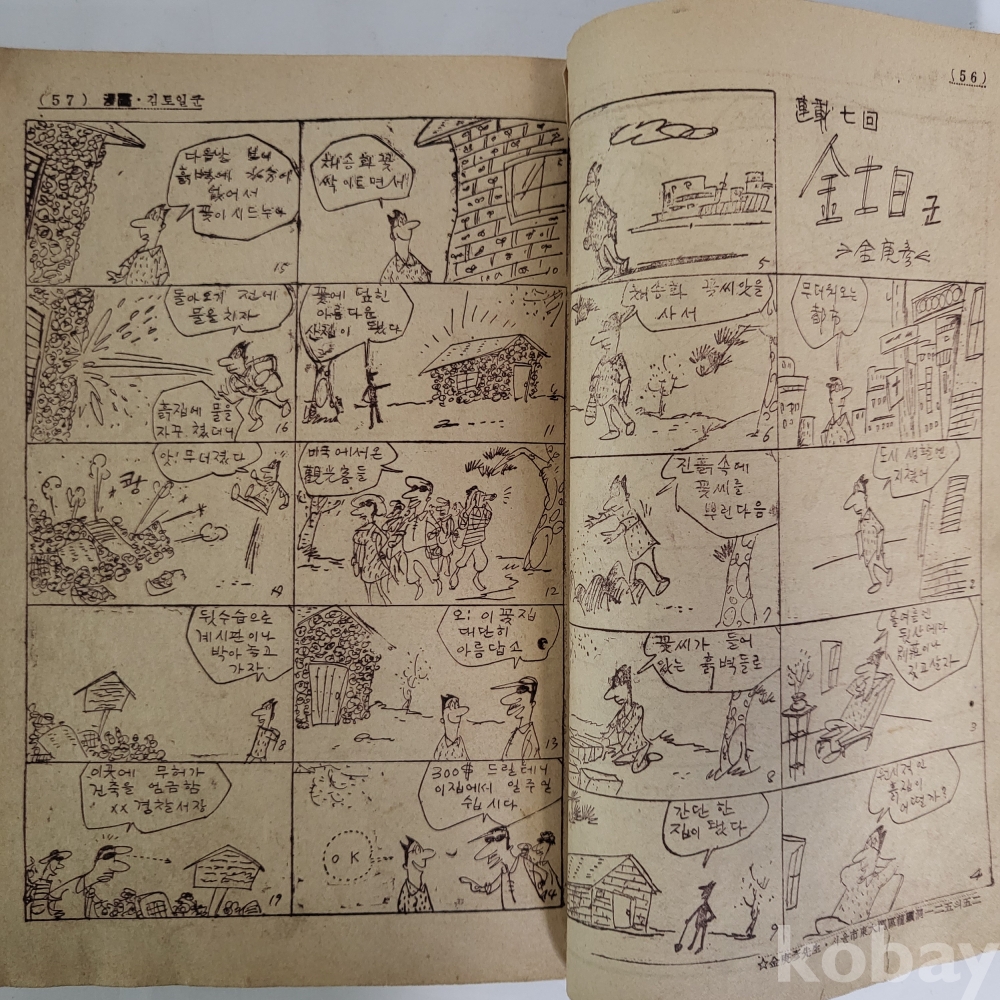 (56)
連載 七回
金土日 군
金庚彦
무더워오는
都市
1
도시 생활엔
지쳤어
2
올여름엔
뒷산에다
別莊이나
짓고살자
3
원시적인
흙집이
어떨까?
4
5
채송화 꽃씨앗을
사서
6
진흙속에
꽃씨를
뿌린다음
7
꽃씨가 들어
있는 흙벽돌로
8
간단한
집이 됐다
9
(57) 漫畵·김토일군
채송화꽃
싹이트면서!
10
꽃에 덮힌
아름다운
산장이 됐다
11
미국에서온
觀光客들
12
오! 이 꽃집
대단히
아름답소
13
300$ 드릴테니
이집에서 일주일
쉽시다
OK
14
다음날 보니
흙벽에 水分이
없어서
꽃이시드누나
15
돌아오기 전에
물을치자
흙집에 물을
자꾸 쳤더니
16
앗! 무너졌다
쾅
뒷수습으로
계시판이나
박아 놓고
가자
18
이곳에 무허가
건축을 엄금함
××경찰서장
19
kobay